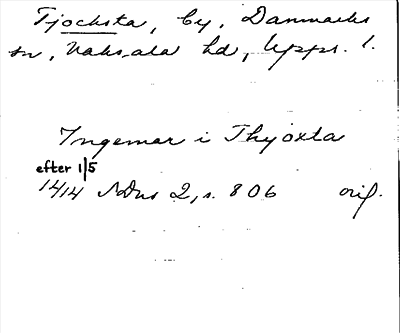 Tjocksta, by, Danmarks
sn, Vaksala hd, Upps. l.
Ingemar i Thyoxta
efter 1/5
1414 SDns 2, s. 806 orig.